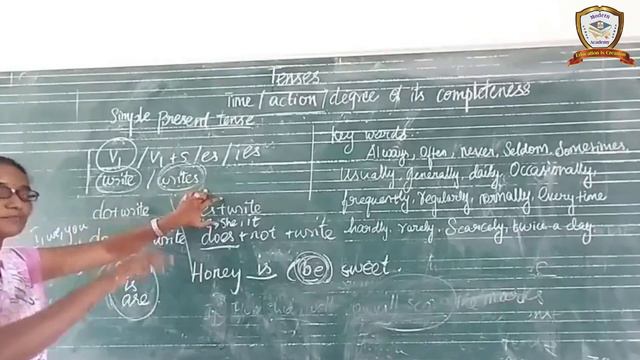 Modern
Academy
Education is Creation
Tenses
Time / action / degree of its completeness
Simple present tense
V1 / V1 + s / es / ies
write / writes
do + write
es + write
I, we, you
she, it
write
does + not + write
Key words
Always, Often, never, Seldom, Sometimes,
Usually, generally, daily, Occasionally,
frequently, regularly, normally, Every time
hardly, rarely, Scarcely, twice a day.
Honey is be sweet.
is
are